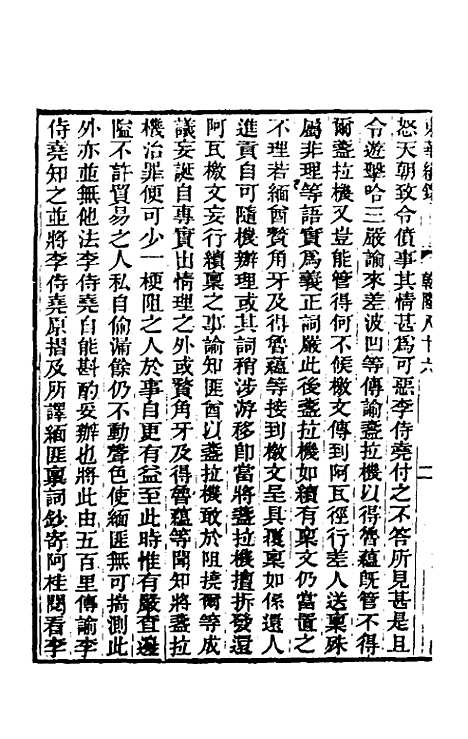 東華續錄 乾隆八十六 二
怒天朝致令僨事其情甚爲可惡李侍堯付之不答所見甚是且
令遊擊哈三嚴諭來差波凹等傳諭盞拉機以得魯蘊旣管不得
爾盞拉機又豈能管得何不候檄文傳到阿瓦徑行差人送稟殊
屬非理等語實爲義正詞嚴此後盞拉機如續有稟文仍當置之
不理若緬酋贅角牙及得魯蘊等接到檄文呈具覆稟如係還人
進貢自可隨機辦理或其詞稍涉游移卽當將盞拉機擅拆發還
阿瓦檄文妄行續稟之事諭知匪酋以盞拉機敢於阻撓爾等成
議妄誕自專實出情理之外或贅角牙及得魯蘊等聞知將盞拉
機治罪便可少一梗阻之人於事自更有益至此時惟有嚴查邊
隘不許貿易之人私自偷漏餘仍不動聲色使緬匪無可揣測此
外亦並無他法李侍堯自能斟酌妥辦也將此由五百里傳諭李
侍堯知之並將李侍堯原摺及所譯緬匪稟詞鈔寄阿桂閱看李